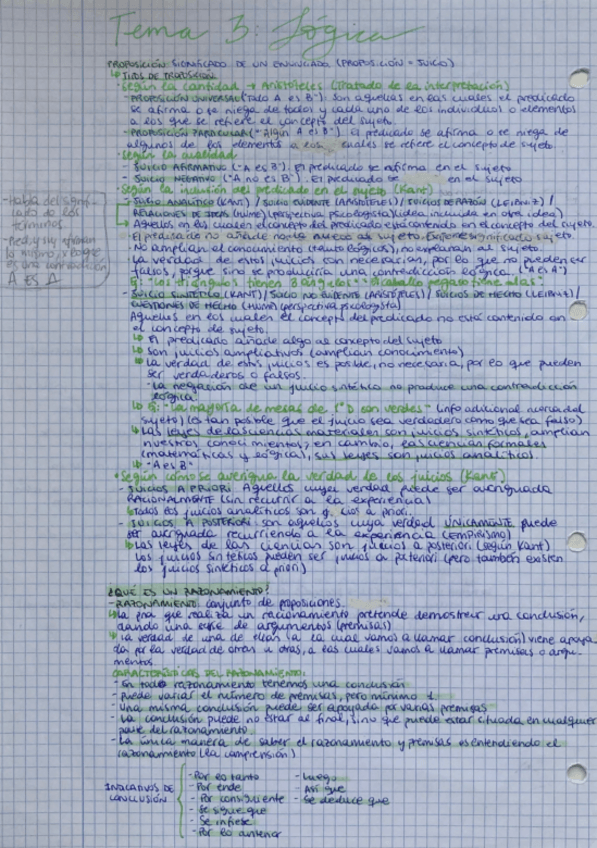 Tema 3: Lógica
PROPOSICIÓN: SIGNIFICADO DE UN ENUNCIADO (PROPOSICIÓN = JUICIO)
TIPOS DE PROPOSICIÓN
• Según la cantidad → Aristóteles (Tratado de la interpretación)
- PROPOSICIÓN UNIVERSAL ("Todo A es B"). Son aquellas en las cuales el predicado
se afirma o se niega de todos y cada uno de los individuos o elementos
a los que se refiere el concepto del sujeto.
- PROPOSICIÓN PARTICULAR ("Algún A es B"). El predicado se afirma o se niega de
algunos de los elementos a los cuales se refiere el concepto de sujeto.
• Según la cualidad
- JUICIO AFIRMATIVO ("A es B"). El predicado se afirma en el sujeto
- JUICIO NEGATIVO ("A no es B"). El predicado se en el sujeto
• Según la inclusión del predicado en el sujeto (Kant)
- JUICIO ANALÍTICO (KANT) / JUICIO EVIDENTE (ARISTÓTELES) / JUICIOS DE RAZÓN (LEIBNIZ) /
RELACIONES DE IDEAS (HUME) (perspectiva psicologista) (idea incluida en otra idea)
Aquellos en los cuales el concepto del predicado está contenido en el concepto del sujeto.
El predicado no añade nada nuevo al sujeto.
No amplían el conocimiento (tautológicos), no explican al sujeto
La verdad de estos juicios es necesaria, por lo que no pueden ser
falsos, porque sino se produciría una contradicción lógica. ("A es A")
Ej: "Los triángulos tienen 3 ángulos" "El caballo pegaso tiene alas"
- JUICIO SINTÉTICO (KANT) / JUICIO NO EVIDENTE (ARISTÓTELES) / JUICIOS DE HECHO (LEIBNIZ) /
CUESTIONES DE HECHO (HUME) (perspectiva psicologista)
Aquellos en los cuales el concepto del predicado no está contenido en
el concepto de sujeto.
El predicado añade algo al concepto del sujeto
Son juicios ampliativos (amplían conocimiento)
La verdad de estos juicios es posible, no necesaria, por lo que pueden
ser verdaderos o falsos.
- La negación de un juicio sintético no produce una contradicción
lógica
Ej: "La mayoría de mesas de 1º D son verdes" (info adicional acerca del
sujeto) (es tan posible que el juicio sea verdadero como que sea falso)
Las leyes de las ciencias materiales son juicios sintéticos, amplían
nuestros conocimientos; en cambio, las ciencias formales
(matemáticas y lógica), sus leyes son juicios analíticos.
- "A es B"
• Según como se averigua la verdad de los juicios (Kant)
- JUICIOS A PRIORI: Aquellos cuya verdad puede ser averiguada
RACIONALMENTE (sin recurrir a la experiencia)
Todos los juicios analíticos son juicios a priori.
- JUICIOS A POSTERIORI: son aquellos cuya verdad ÚNICAMENTE puede
ser averiguada recurriendo a la experiencia (EMPIRISMO)
Las leyes de las ciencias son juicios a posteriori (según Kant)
Los juicios sintéticos pueden ser juicios a posteriori (pero también existen
los juicios sintéticos a priori)
¿QUÉ ES UN RAZONAMIENTO?
- RAZONAMIENTO: conjunto de proposiciones.
La pna que realiza un racionamiento pretende demostrar una conclusión,
dando una serie de argumentos (premisas)
La verdad de una de ellas (a la cual vamos a llamar conclusión) viene apoya-
da por la verdad de otras u otras, a las cuales vamos a llamar premisas o argu-
mentos
CARACTERÍSTICAS DEL RAZONAMIENTO:
- En todo razonamiento tenemos una conclusión
- Puede variar el número de premisas, pero mínimo 1
- Una misma conclusión puede ser apoyada por varias premisas
- La conclusión puede no estar al final, sino que puede estar situada en cualquier
parte del razonamiento
- La única manera de saber el razonamiento y premisas es entendiendo el
razonamiento (la comprensión)
INDICATIVOS DE
CONCLUSIÓN
- Por lo tanto
- Por ende
- Por consiguiente
- Se sigue que
- Se infiere
- Por lo anterior
- Luego
- Así que
- Se deduce que
- Habla del signifi-
cado de los
términos
A ES A